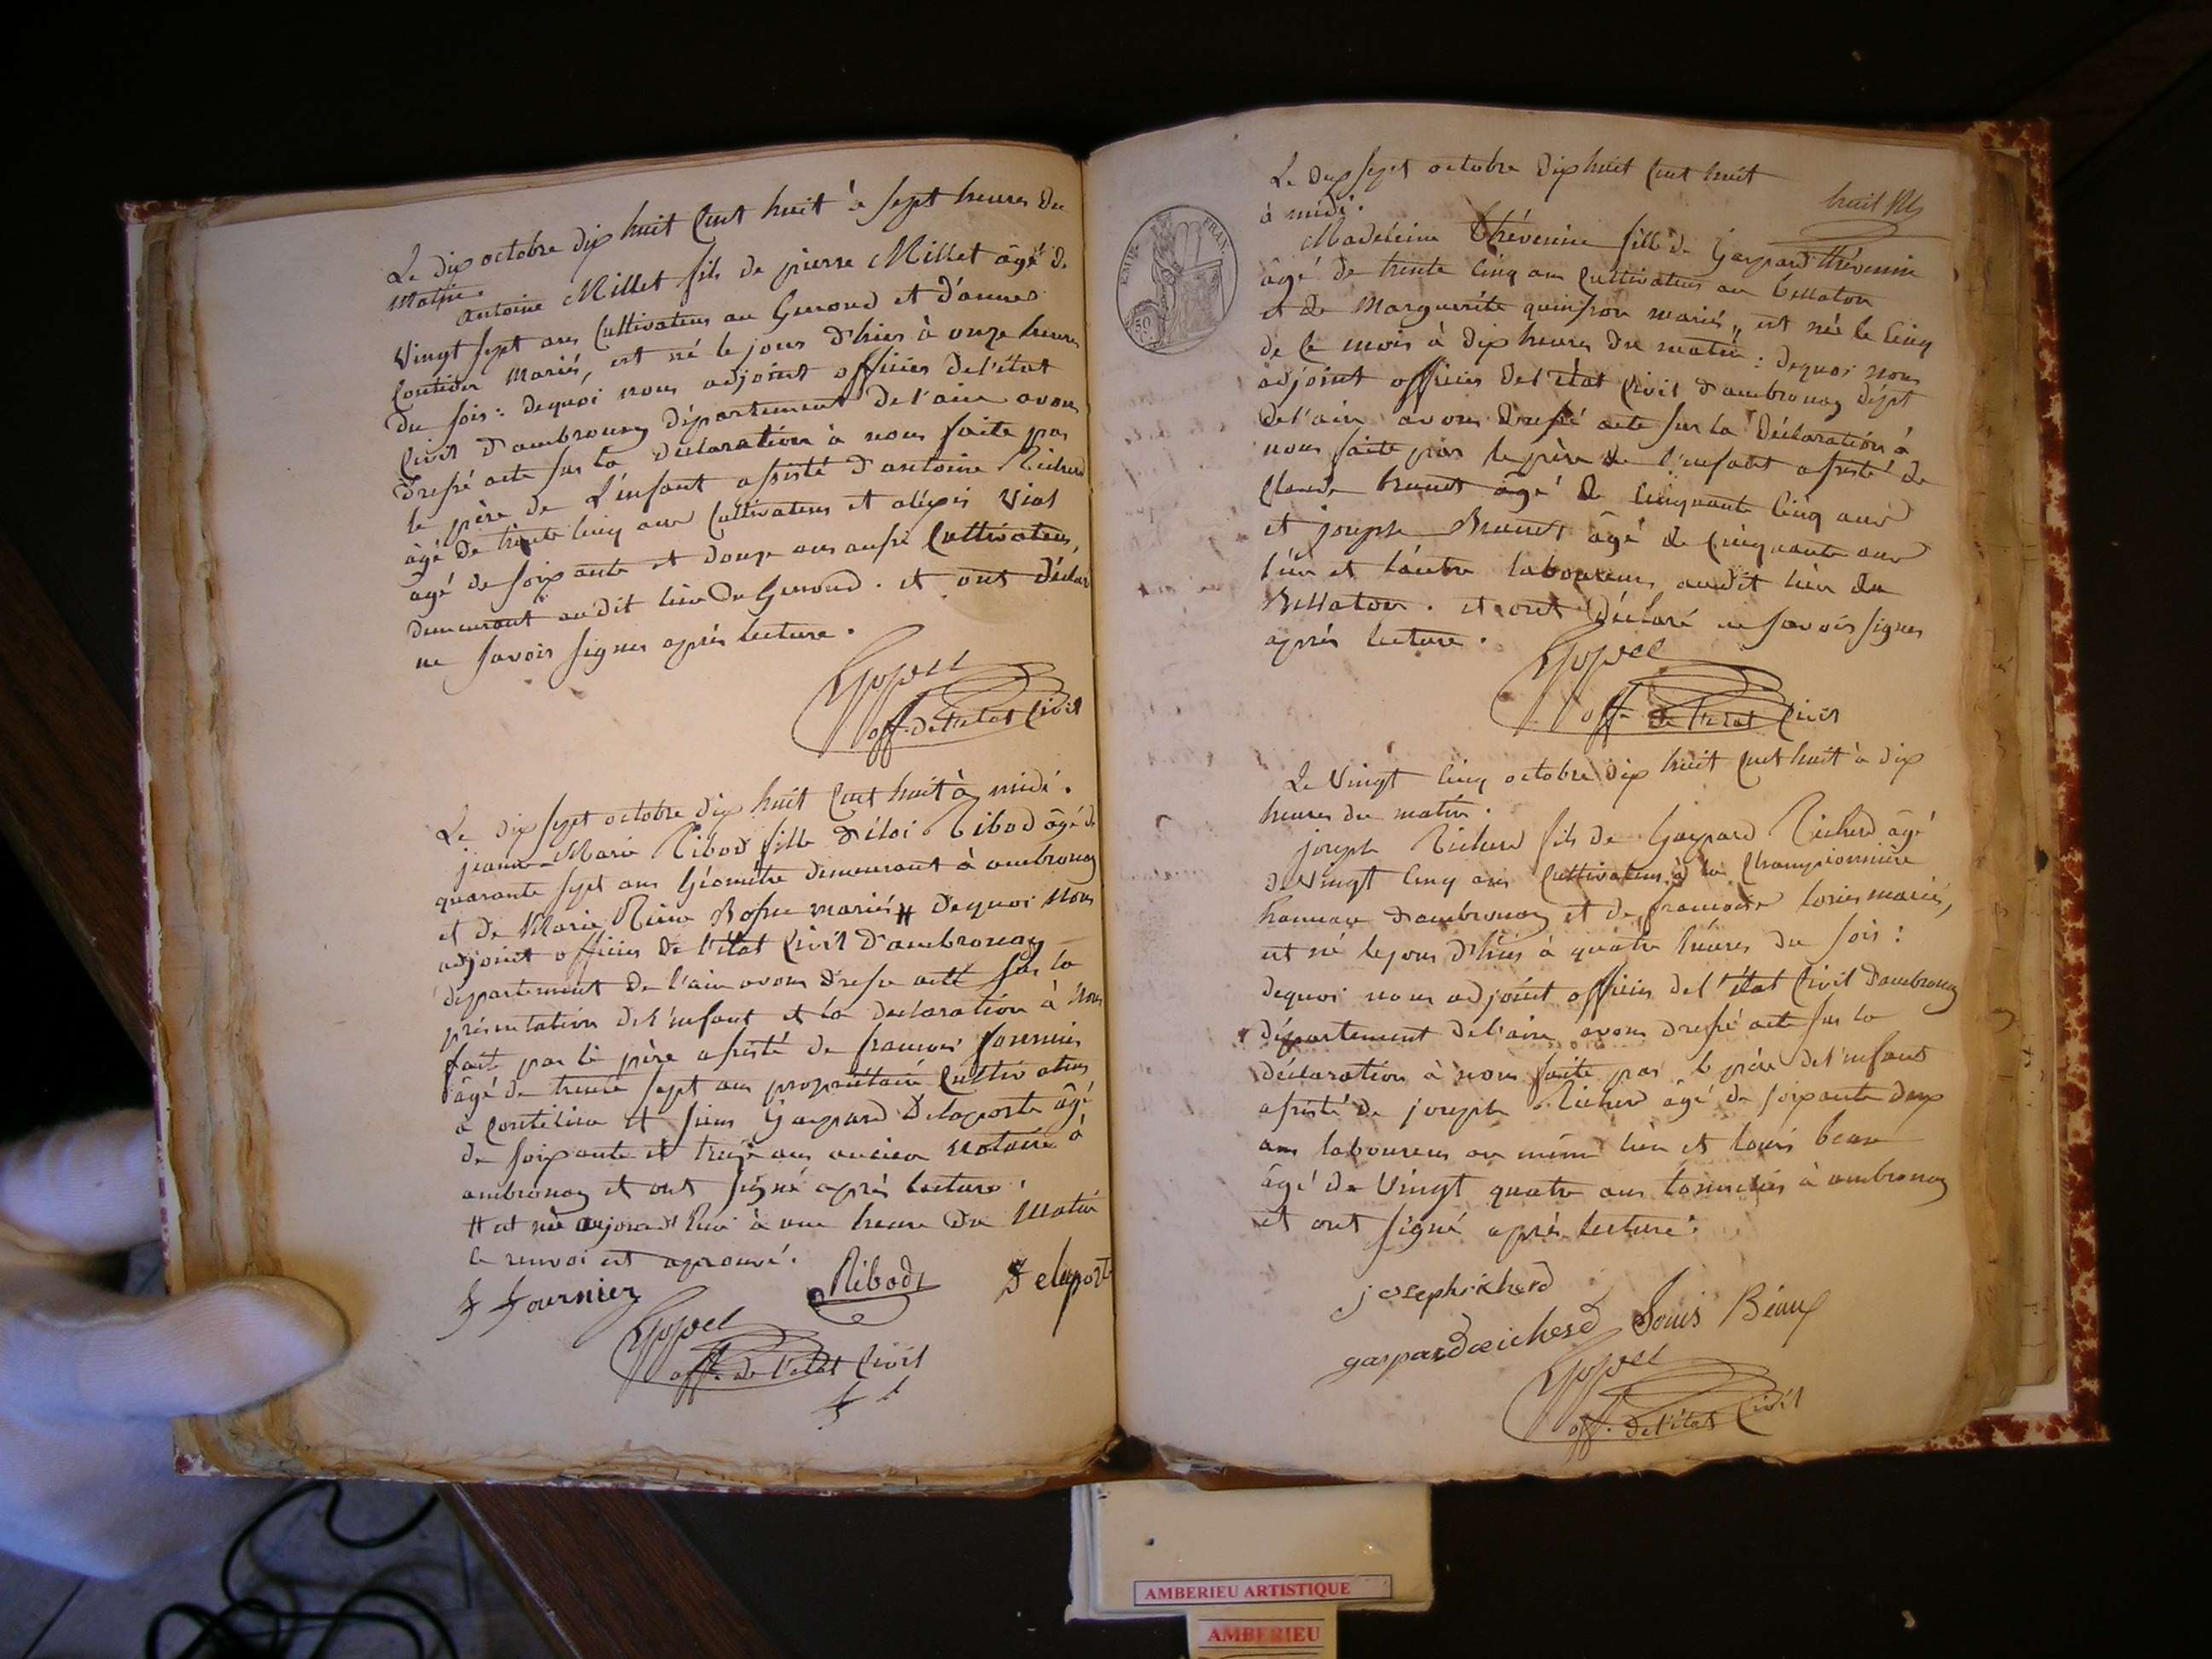 Le dix octobre dix huit cent huit à sept heures du
matin.
antoine Millet fils de pierre Millet âgé de
vingt sept ans cultivateur au Genoud et d'anne
mariés, est né le jour d'hier à onze heures
du soir: dequoi nous adjoint officier de l'état
civil d'ambronay département de l'ain avons
dressé acte sur la déclaration à nous faite par
le père de L'enfant assisté d'antoine Richerd
âgé de trente cinq ans cultivateur et alexis Vial
âgé de soixante et douze ans aussi cultivateur,
demeurant audit lieu du Genoud. et ont déclaré
ne savoir signer après lecture.
off. de l'état civil
Le dix sept octobre dix huit cent huit à midi.
jeanne-Marie Ribod fille d'éloi Ribod âgé de
quarante sept ans Géomètre demeurant à ambronay
et de Marie mariés # dequoi nous
adjoint officier de l'état civil d'ambronay
département de l'ain avons dressé acte sur la
présentation de l'enfant et la declaration à nous
fait par le père assisté de francois fournier
âgé de trente sept ans propriétaire cultivateur
à et sieur Gaspard Delaporte âgé
de soixante et treize ans ancien notaire à
ambronay et ont signé après lecture.
# est née aujourd'hui à une heure du matin
le renvoi est aprouvé.
f fournier Ribod Delaporte
off. de l'état civil
Le dix sept octobre dix huit cent huit
à midi.
huit
Madeleine Thévenin fille de Gaspard thévenin
âgé de trente cinq ans cultivateur au bellaton
et de Marguerite quinson mariés, est née le cinq
de ce mois à dix heures du matin: dequoi nous
adjoint officier de l'état civil d'ambronay dépt
de l'ain avons dressé acte sur la déclaration à
nous faite par le père de l'enfant assisté de
Claude brunet âgé de cinquante cinq ans
et joseph Brunet âgé de cinquante ans
l'un et l'autre laboureurs audit lieu du
Bellaton. et ont déclaré ne savoir signer
après lecture.
off. de l'état civil
EMPE. FRAN.
50
Le vingt cinq octobre dix huit cent huit à dix
heures du matin.
joseph Richerd fils de Gaspard Richerd âgé
de vingt cinq ans cultivateur à la Championnière
hameau d'ambronay et de francoise mariés,
est né le jour d'hier à quatre heures du soir:
dequoi nous adjoint officier de l'état civil d'ambronay
département de l'ain avons dressé acte sur la
déclaration à nous faite par le père de l'enfant
assisté de joseph Richerd âgé de soixante deux
ans laboureur au même lieu et louis beau
âgé de vingt quatre ans tonnelier à ambronay
et ont signé après lecture.
joseph richerd
gaspard richerd Louis Béaux
off. de l'état civil
AMBERIEU ARTISTIQUE
AMBERIEU